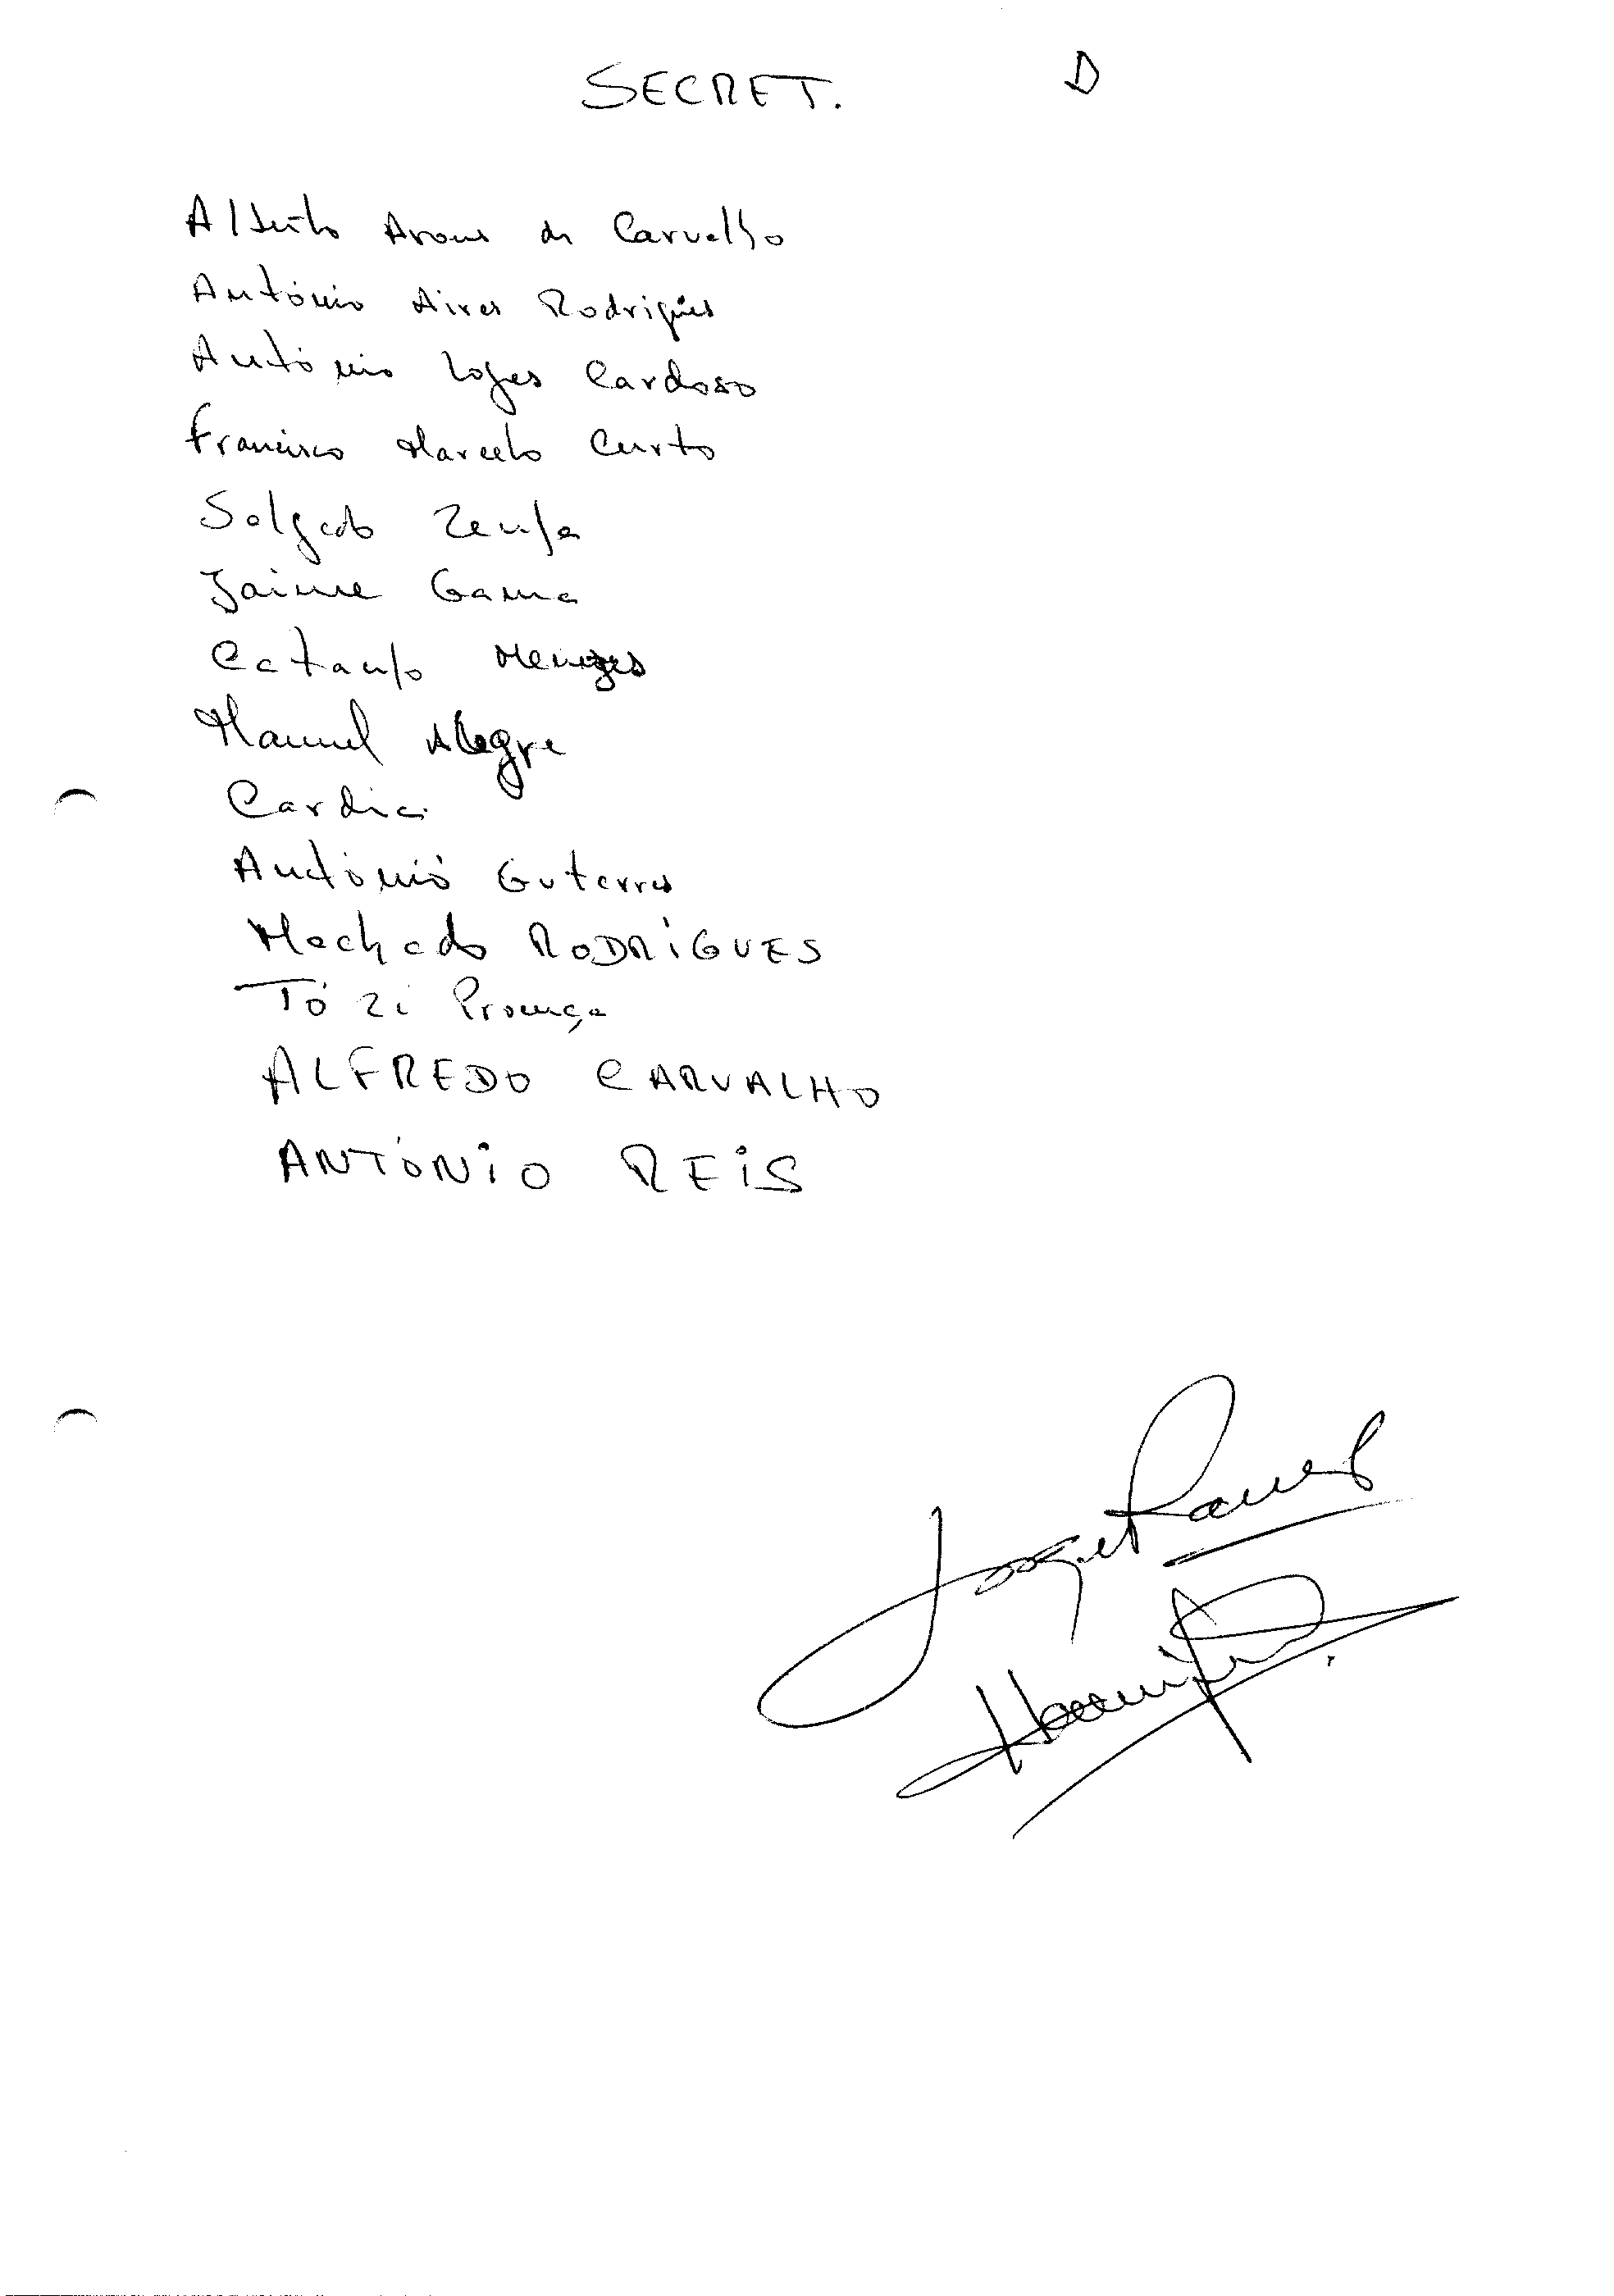 SECRET. D
Alberto Arons de Carvalho
António Aires Rodrigues
António Lopes Cardoso
Francisco Marcelo Curto
Salgado Zenha
Jaime Gama
Catanho Menezes
Manuel Alegre
Cardia
António Guterres
Machado RODRIGUES
Tó Zé Proença
ALFREDO CARVALHO
ANTÓNIO REIS